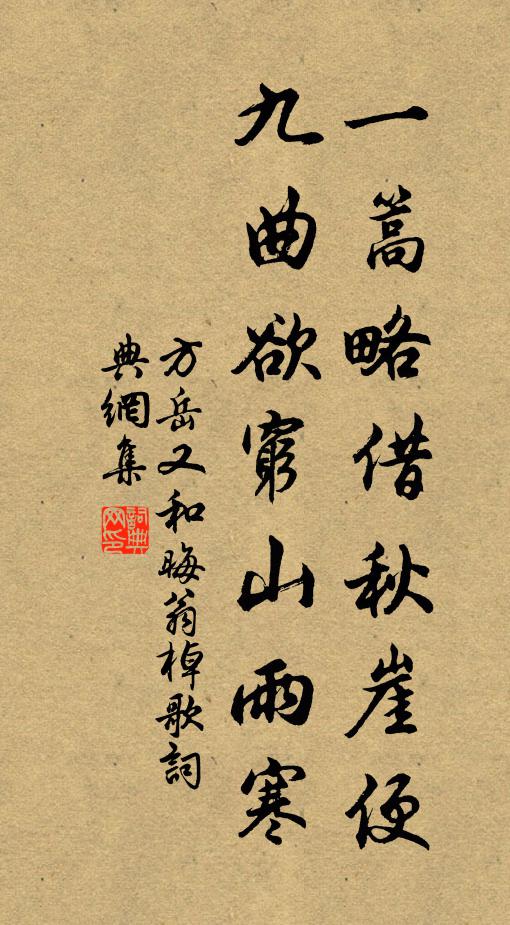 一蒿略借秋崖便
九曲欲窮山雨寒
方岳又和晦翁棹歌詞
典網集
詞典網印